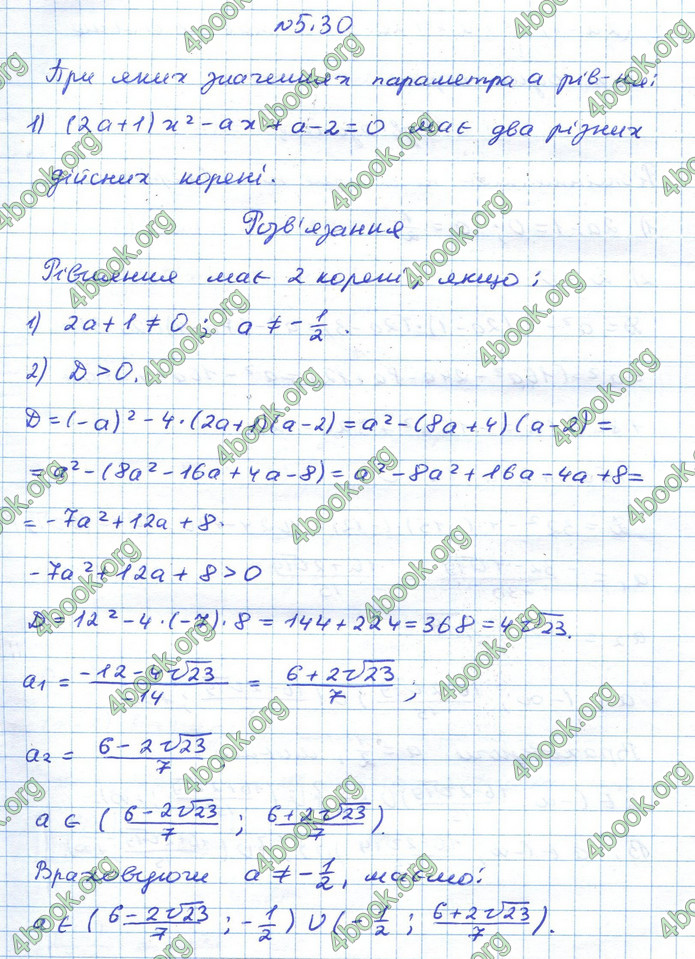 №5.30
При яких значеннях параметра а рів-ня:
1) (2a+1)x²-ax+a-2=0 має два різних
дійсних корені.
Розв'язання
Рівняння має 2 корені, якщо:
1) 2a+1≠0; a≠-1/2.
2) D>0.
D=(-a)²-4·(2a+1)(a-2)=a²-(8a+4)(a-2)=
=a²-(8a²-16a+4a-8)=a²-8a²+16a-4a+8=
=-7a²+12a+8.
-7a²+12a+8>0
D=12²-4·(-7)·8=144+224=368=4√23.
a1=(-12-4√23)/(-14)=(6+2√23)/7;
a2=(6-2√23)/7
a∈((6-2√23)/7; (6+2√23)/7).
Враховуючи a≠-1/2, маємо:
a∈((6-2√23)/7; -1/2)∪(-1/2; (6+2√23)/7).
4book.org